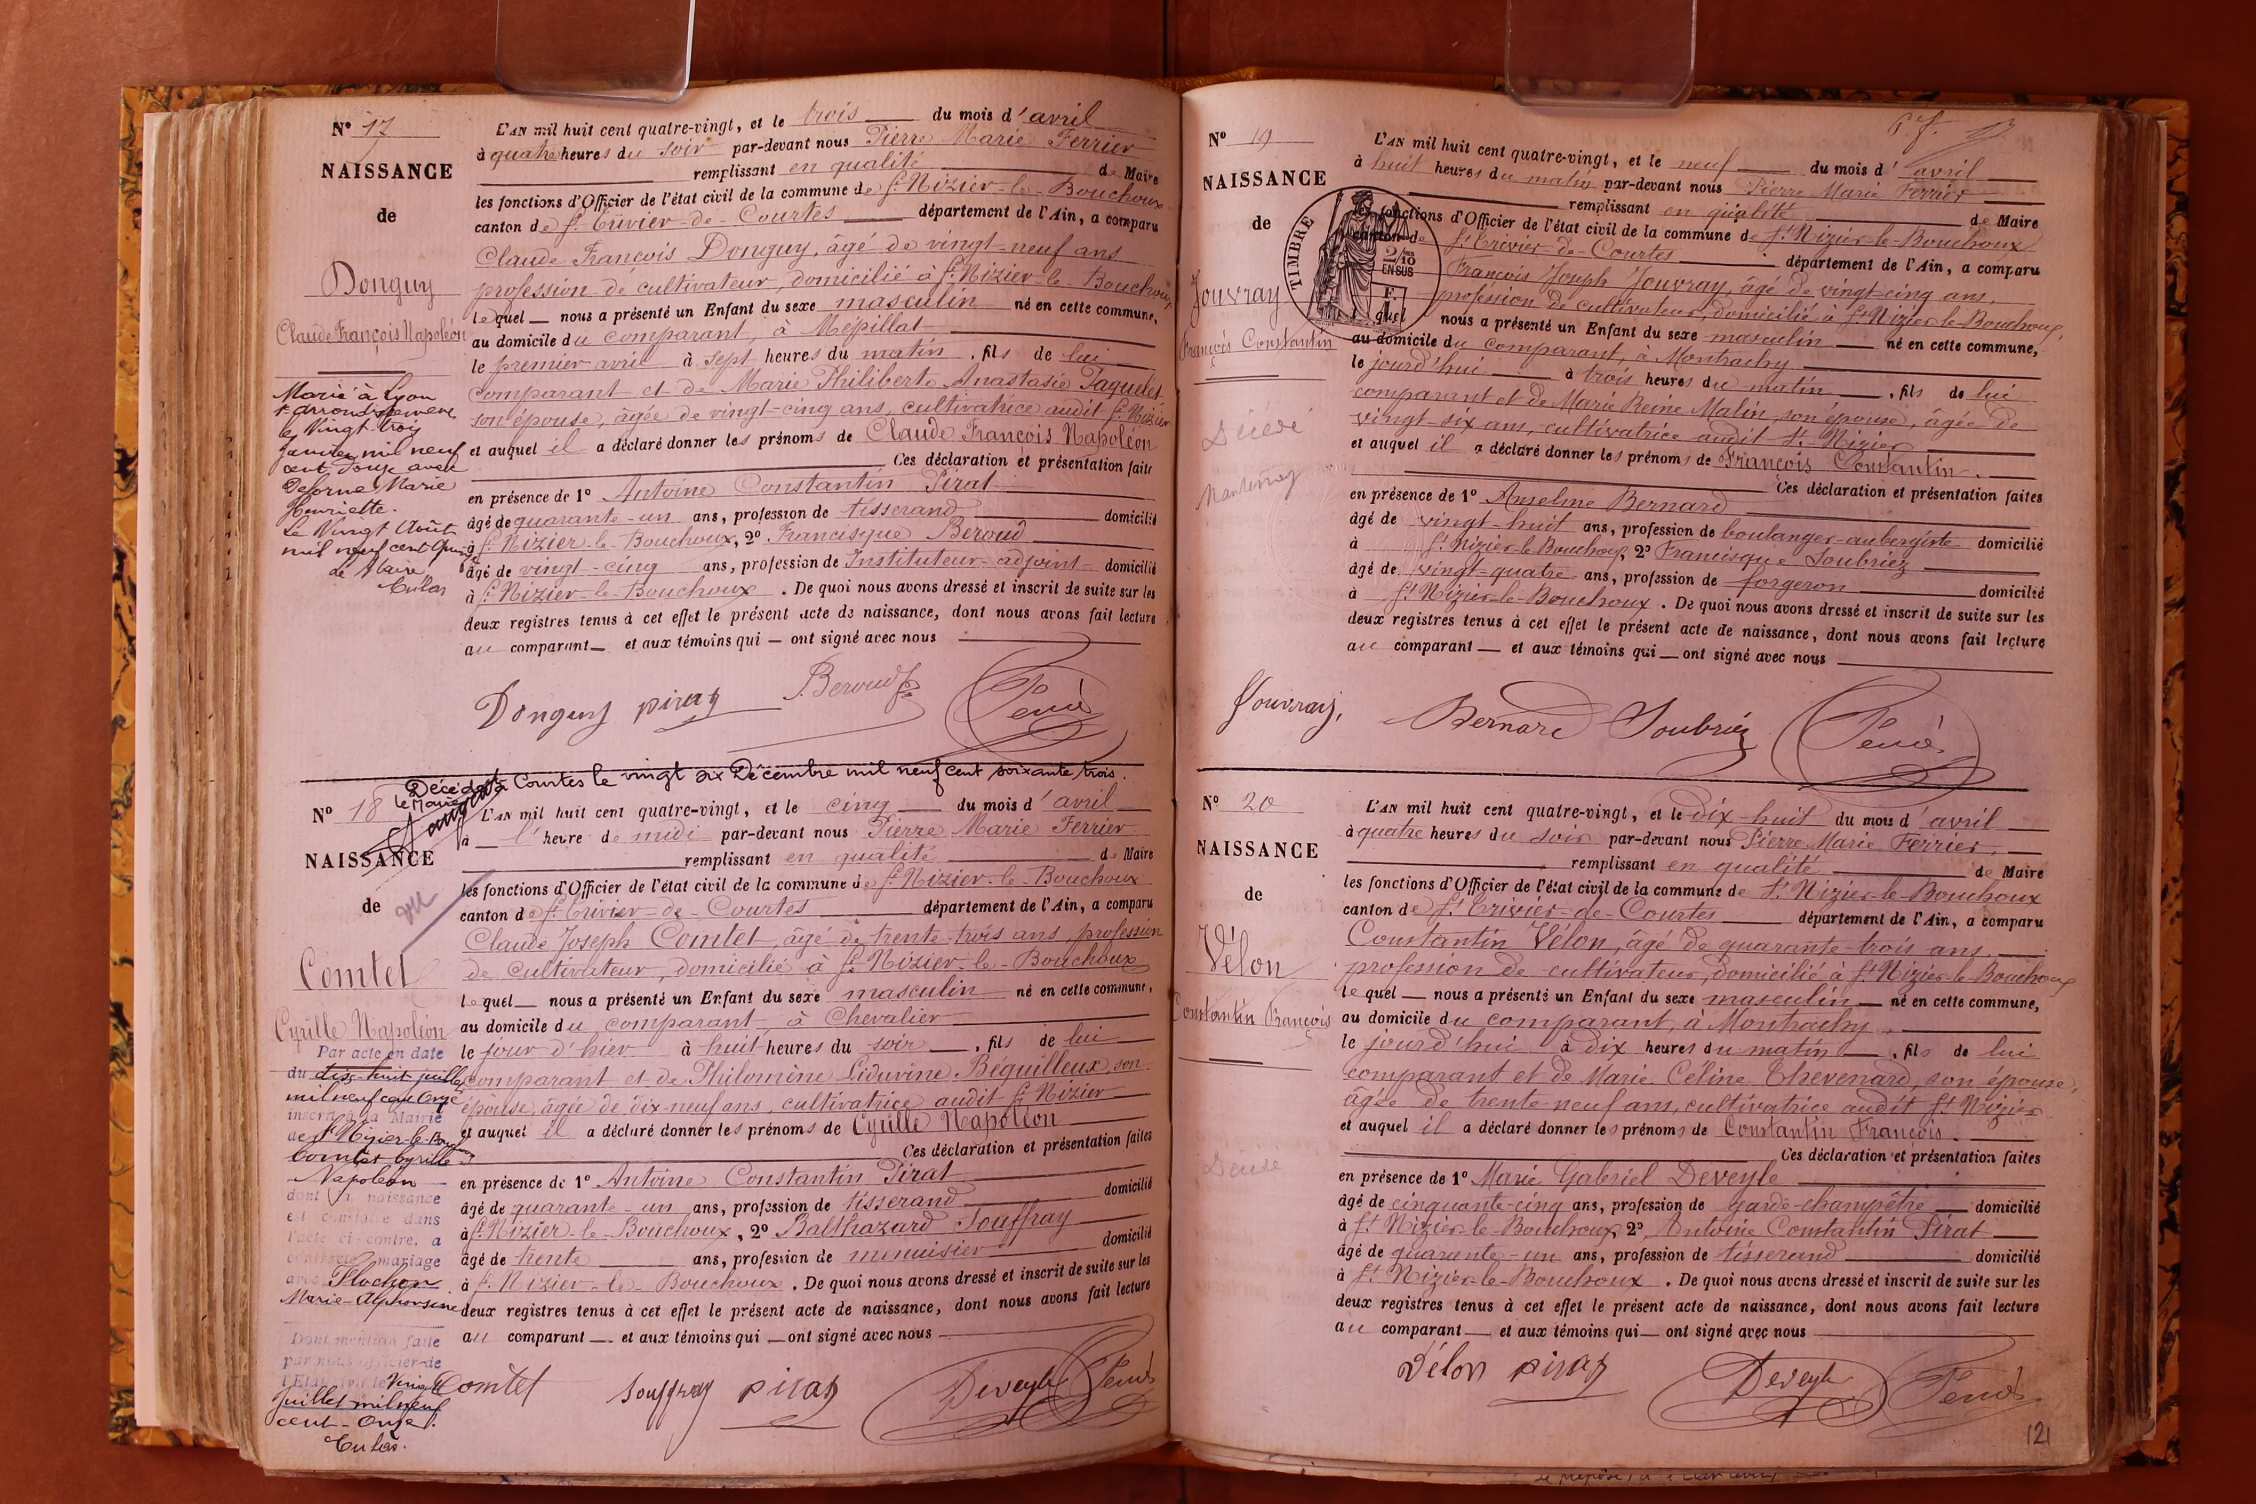 N° 17
NAISSANCE
de
Donguy
Claude François Napoléon
Marié à Lyon
le Vingt trois
janvier mil neuf
cent douze avec
Deforne Marie
Henriette.
Le Vingt Août
mil neuf cent quinze
Le Maire
L'AN mil huit cent quatre-vingt, et le trois du mois d'avril
à quatre heures du soir par-devant nous Pierre Marie Ferrier
remplissant en qualité de Maire
les fonctions d'Officier de l'état civil de la commune de St Nizier-le-Bouchoux
canton de St Trivier-de-Courtes département de l'Ain, a comparu
Claude François Donguy, âgé de vingt-neuf ans
profession de cultivateur, domicilié à St Nizier-le-Bouchoux
lequel nous a présenté un Enfant du sexe masculin né en cette commune,
au domicile du comparant, à Mépillat
le premier avril à sept heures du matin, fils de lui
comparant et de Marie Philiberte Anastasie Paquelet
son épouse, âgée de vingt-cinq ans, cultivatrice audit St Nizier
et auquel il a déclaré donner les prénoms de Claude François Napoléon
Ces déclaration et présentation faites
en présence de 1° Antoine Constantin Pirat
âgé de quarante-un ans, profession de tisserand domicilié
à St Nizier-le-Bouchoux, 2° Francisque Beroud
âgé de vingt-cinq ans, profession de Instituteur-adjoint domicilié
à St Nizier-le-Bouchoux. De quoi nous avons dressé et inscrit de suite sur les
deux registres tenus à cet effet le présent acte de naissance, dont nous avons fait lecture
au comparant et aux témoins qui ont signé avec nous
Donguy pirat Beroud
Décédé à Courtes le vingt six Décembre mil neuf cent soixante trois.
Le Maire
N° 18
NAISSANCE
de
Comtet
Cyrille Napoléon
Par acte en date
du dix-huit juillet
mil neuf cent onze
inscrit à la Mairie
de St Nizier-le-Bouchoux
Comtet Cyrille
Napoléon
dont la naissance
est constatée dans
l'acte ci-contre, a
contracté mariage
avec Plochon
Marie-Alphonsine
Dont mention faite
par nous officier de
l'Etat civil le Vingt
juillet mil neuf
cent-onze.
L'AN mil huit cent quatre-vingt, et le cinq du mois d'avril
à l'heure de midi par-devant nous Pierre Marie Ferrier
remplissant en qualité de Maire
les fonctions d'Officier de l'état civil de la commune de St Nizier-le-Bouchoux
canton de St Trivier-de-Courtes département de l'Ain, a comparu
Claude Joseph Comtet, âgé de trente-trois ans, profession
de cultivateur, domicilié à St Nizier-le-Bouchoux
lequel nous a présenté un Enfant du sexe masculin né en cette commune,
au domicile du comparant, à Chevalier
le jour d'hier à huit heures du soir, fils de lui
comparant et de Philomène Liduvine Béguilleux son
épouse, âgée de dix-neuf ans, cultivatrice audit St Nizier
et auquel il a déclaré donner les prénoms de Cyrille Napoléon
Ces déclaration et présentation faites
en présence de 1° Antoine Constantin Pirat
âgé de quarante-un ans, profession de tisserand domicilié
à St Nizier-le-Bouchoux, 2° Balthazard Souffray
âgé de trente ans, profession de menuisier domicilié
à St Nizier-le-Bouchoux. De quoi nous avons dressé et inscrit de suite sur les
deux registres tenus à cet effet le présent acte de naissance, dont nous avons fait lecture
au comparant et aux témoins qui ont signé avec nous
Comtet souffray pirat Deveyle
N° 19
NAISSANCE
de
Jouvray
François Constantin
Décédé
TIMBRE
2/10
EN SUS
L'AN mil huit cent quatre-vingt, et le neuf du mois d'avril
à huit heures du matin par-devant nous Pierre Marie Ferrier
remplissant en qualité de Maire
fonctions d'Officier de l'état civil de la commune de St Nizier-le-Bouchoux
canton de St Trivier-de-Courtes département de l'Ain, a comparu
François Joseph Jouvray, âgé de vingt-cinq ans,
profession de cultivateur, domicilié à St Nizier-le-Bouchoux,
quel nous a présenté un Enfant du sexe masculin né en cette commune,
au domicile du comparant, à Montrachy
le jourd'hui à trois heures du matin, fils de lui
comparant et de Marie Reine Malin, son épouse, âgée de
vingt-six ans, cultivatrice audit St Nizier
et auquel il a déclaré donner les prénoms de François Constantin.
Ces déclaration et présentation faites
en présence de 1° Anselme Bernard
âgé de vingt-huit ans, profession de boulanger-aubergiste domicilié
à St Nizier-le-Bouchoux, 2° Francisque Soubriez
âgé de vingt-quatre ans, profession de forgeron domicilié
à St Nizier-le-Bouchoux. De quoi nous avons dressé et inscrit de suite sur les
deux registres tenus à cet effet le présent acte de naissance, dont nous avons fait lecture
au comparant et aux témoins qui ont signé avec nous
Jouvray, Bernard Soubriez
N° 20
NAISSANCE
de
Vélon
Constantin François
L'AN mil huit cent quatre-vingt, et le dix-huit du mois d'avril
à quatre heures du soir par-devant nous Pierre Marie Ferrier,
remplissant en qualité de Maire
les fonctions d'Officier de l'état civil de la commune de St Nizier-le-Bouchoux
canton de St Trivier-de-Courtes département de l'Ain, a comparu
Constantin Vélon, âgé de quarante-trois ans,
profession de cultivateur, domicilié à St Nizier-le-Bouchoux
lequel nous a présenté un Enfant du sexe masculin né en cette commune,
au domicile du comparant, à Montrachy
le jourd'hui à dix heures du matin, fils de lui
comparant et de Marie Céline Thevenard, son épouse,
âgée de trente-neuf ans, cultivatrice audit St Nizier
et auquel il a déclaré donner les prénoms de Constantin François.
Ces déclaration et présentation faites
en présence de 1° Marie Gabriel Deveyle
âgé de cinquante-cinq ans, profession de garde-champêtre domicilié
à St Nizier-le-Bouchoux, 2° Antoine Constantin Pirat
âgé de quarante-un ans, profession de tisserand domicilié
à St Nizier-le-Bouchoux. De quoi nous avons dressé et inscrit de suite sur les
deux registres tenus à cet effet le présent acte de naissance, dont nous avons fait lecture
au comparant et aux témoins qui ont signé avec nous
Vélon pirat Deveyle
121